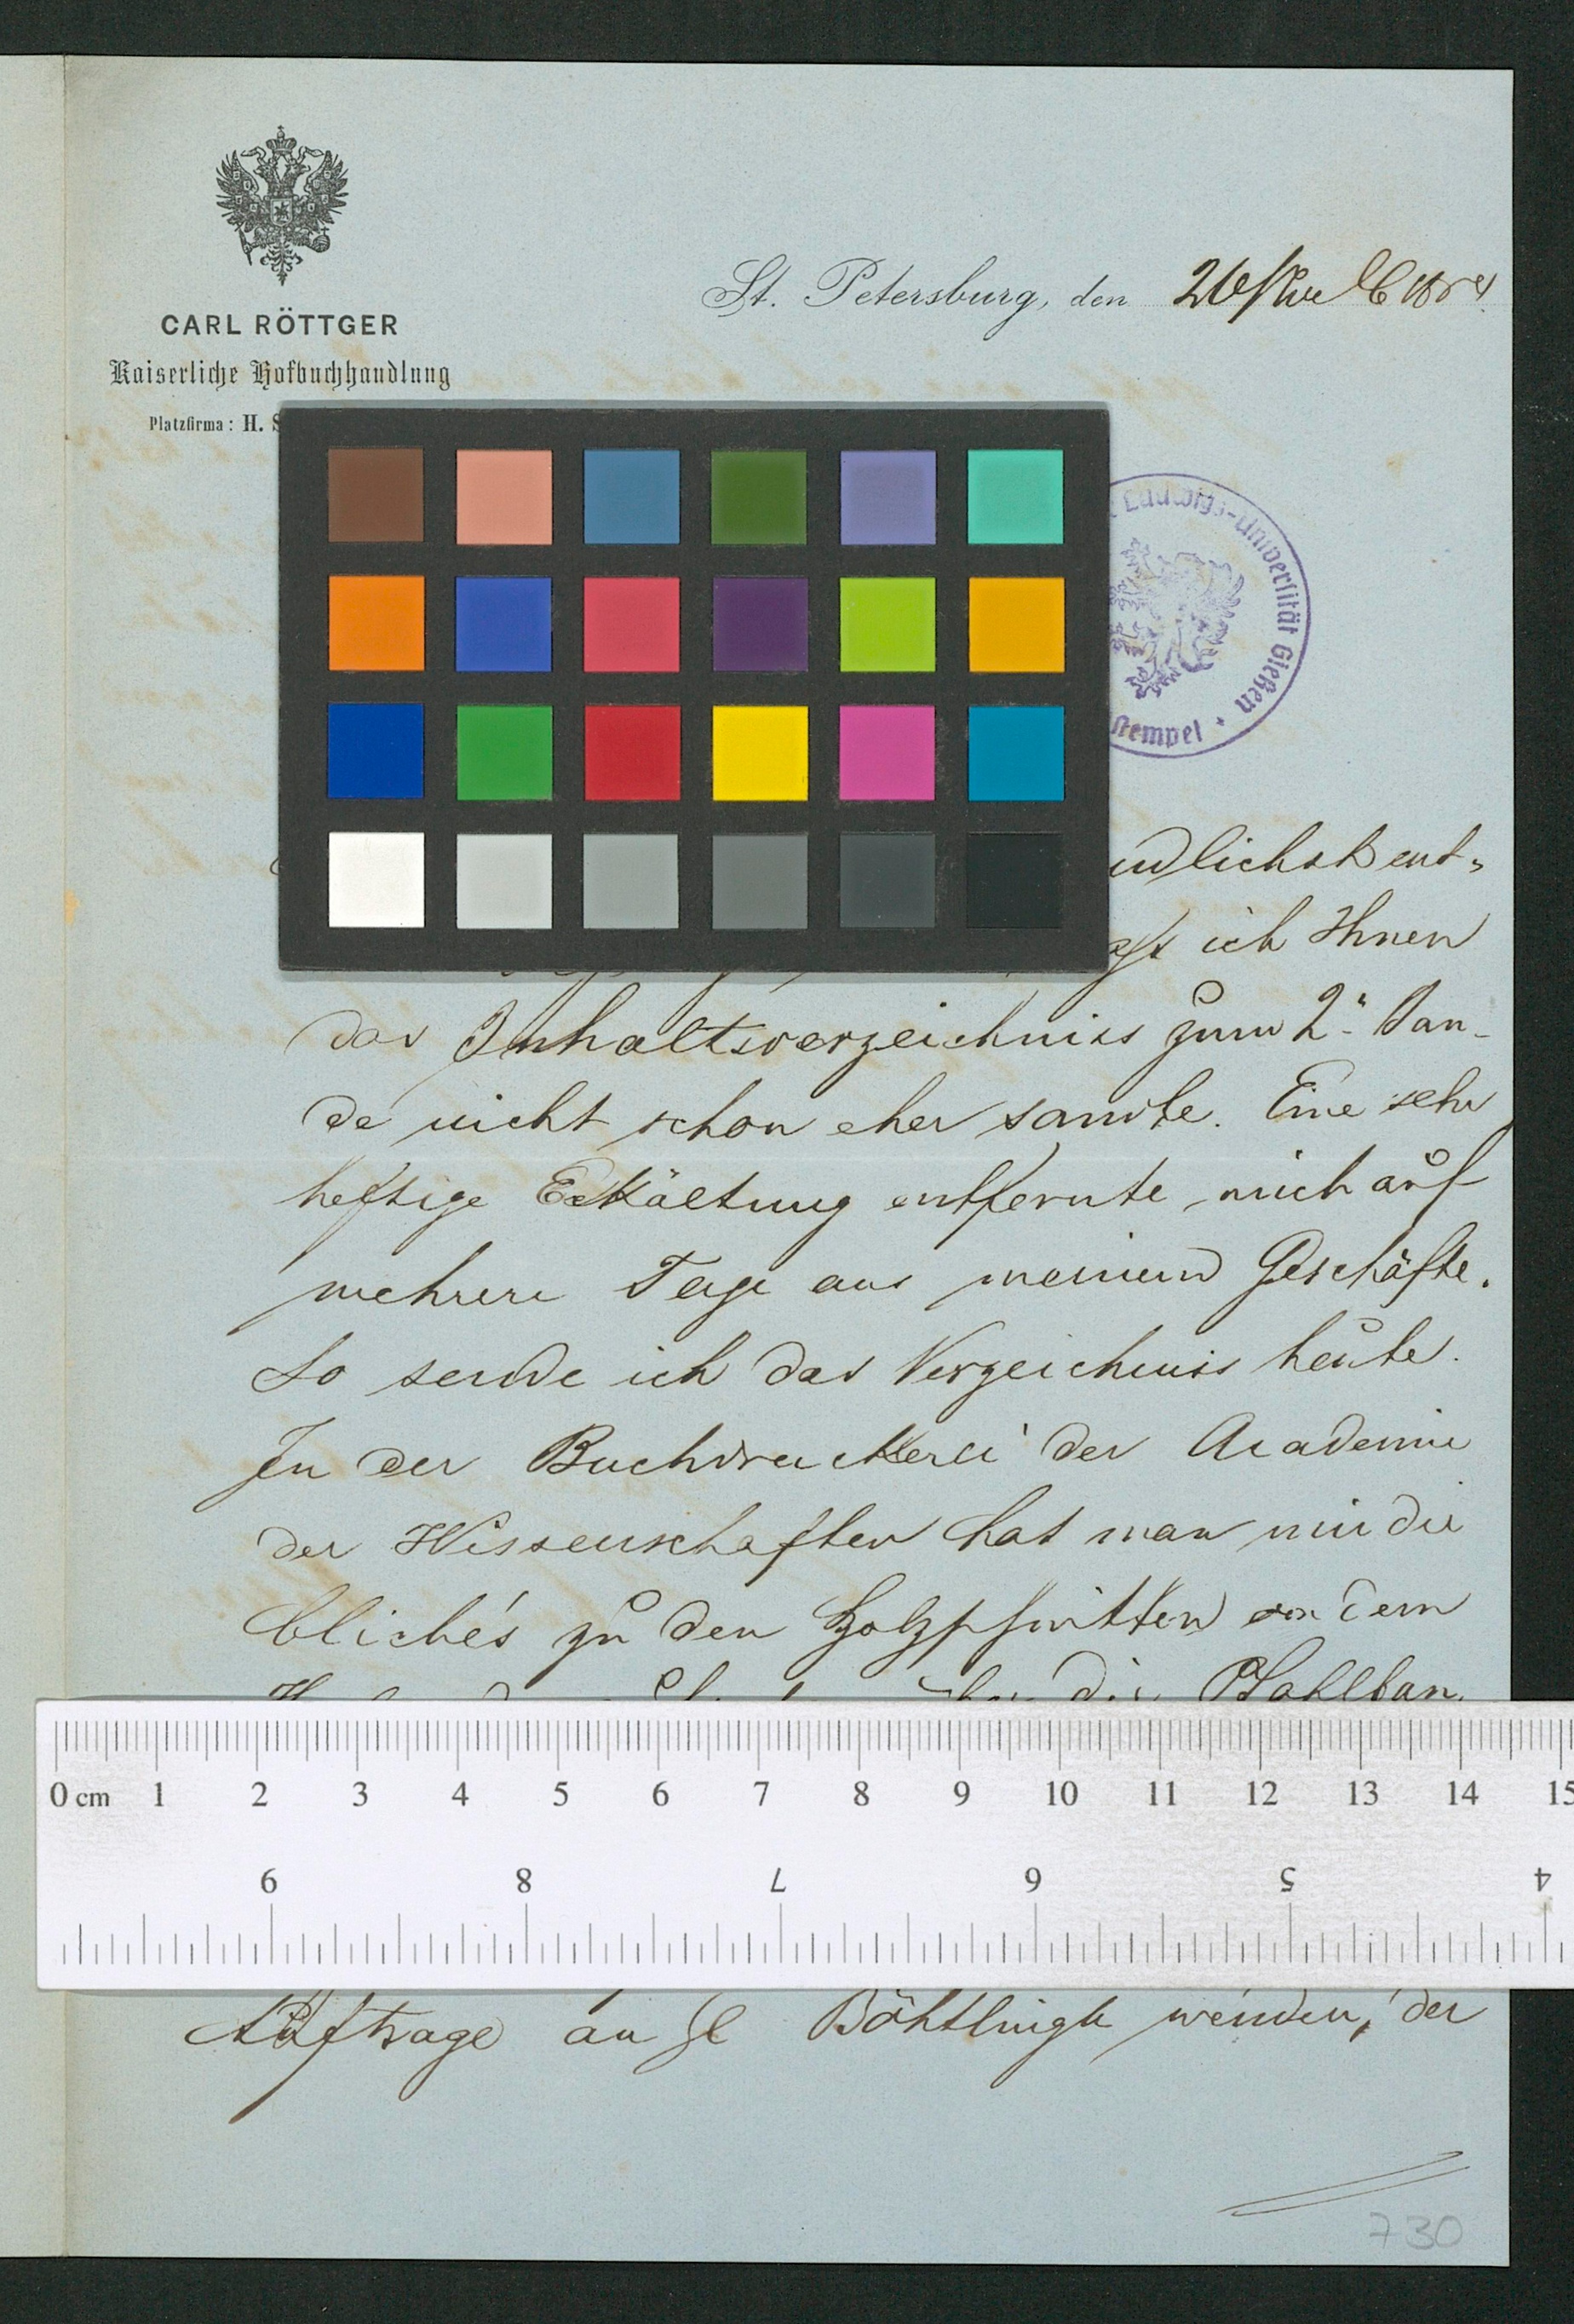 CARL RÖTTGER
Kaiserliche Hofbuchhandlung
Platzfirma: H.
St. Petersburg, den
Ludwigs-Universität Gießen
stempel
ich Ihnen
das Inhaltsverzeichniss zum 2. Ban-
de nicht schon eher sandte. Eine sehr
heftige Erkältung entfernte mich auf
mehrere Tage aus meinem Geschäfte.
So sende ich das Verzeichniss heute.
In der Buchdruckerei der Academie
der Wissenschaften hat man mir die
Clichés zu den Holzschnitten dem
die
0 cm 1 2 3 4 5 6 7 8 9 10 11 12 13 14 15
9 8 7 6 5 4
Auftrage an Böhtlingk wenden, der
730